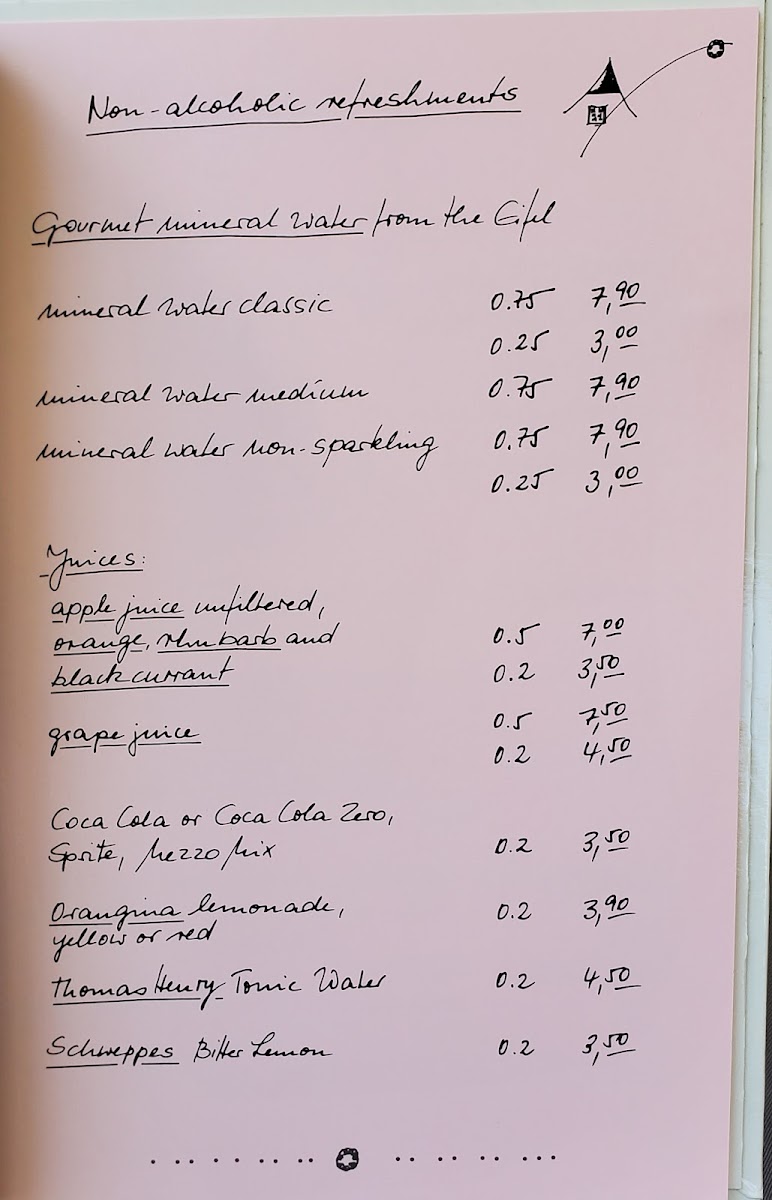 Non-alcoholic refreshments
Gourmet mineral water from the Eifel
mineral water classic 0.75 7,90
0.25 3,00
mineral water medium 0.75 7,90
mineral water non-sparkling 0.75 7,90
0.25 3,00
Juices:
apple juice unfiltered,
orange, rhubarb and 0.5 7,00
blackcurrant 0.2 3,50
grape juice 0.5 7,50
0.2 4,50
Coca Cola or Coca Cola Zero,
Sprite, Mezzo Mix 0.2 3,50
Orangina lemonade, 0.2 3,90
yellow or red
Thomas Henry Tonic Water 0.2 4,50
Schweppes Bitter Lemon 0.2 3,50